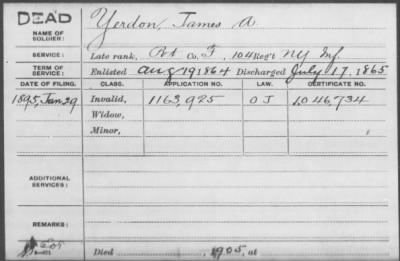 DEAD
NAME OF SOLDIER: Yerdon, James A.
SERVICE: Late rank, Pvt Co. F, 104 Reg't NY Inf.
TERM OF SERVICE: Enlisted Aug 19 1864 Discharged July 17, 1865
DATE OF FILING. CLASS. APPLICATION NO. LAW. CERTIFICATE NO.
1895, Jan 29 Invalid, 1163,925 O J 1,046,734
Widow,
Minor,
ADDITIONAL SERVICES:
REMARKS:
Died 1905, at